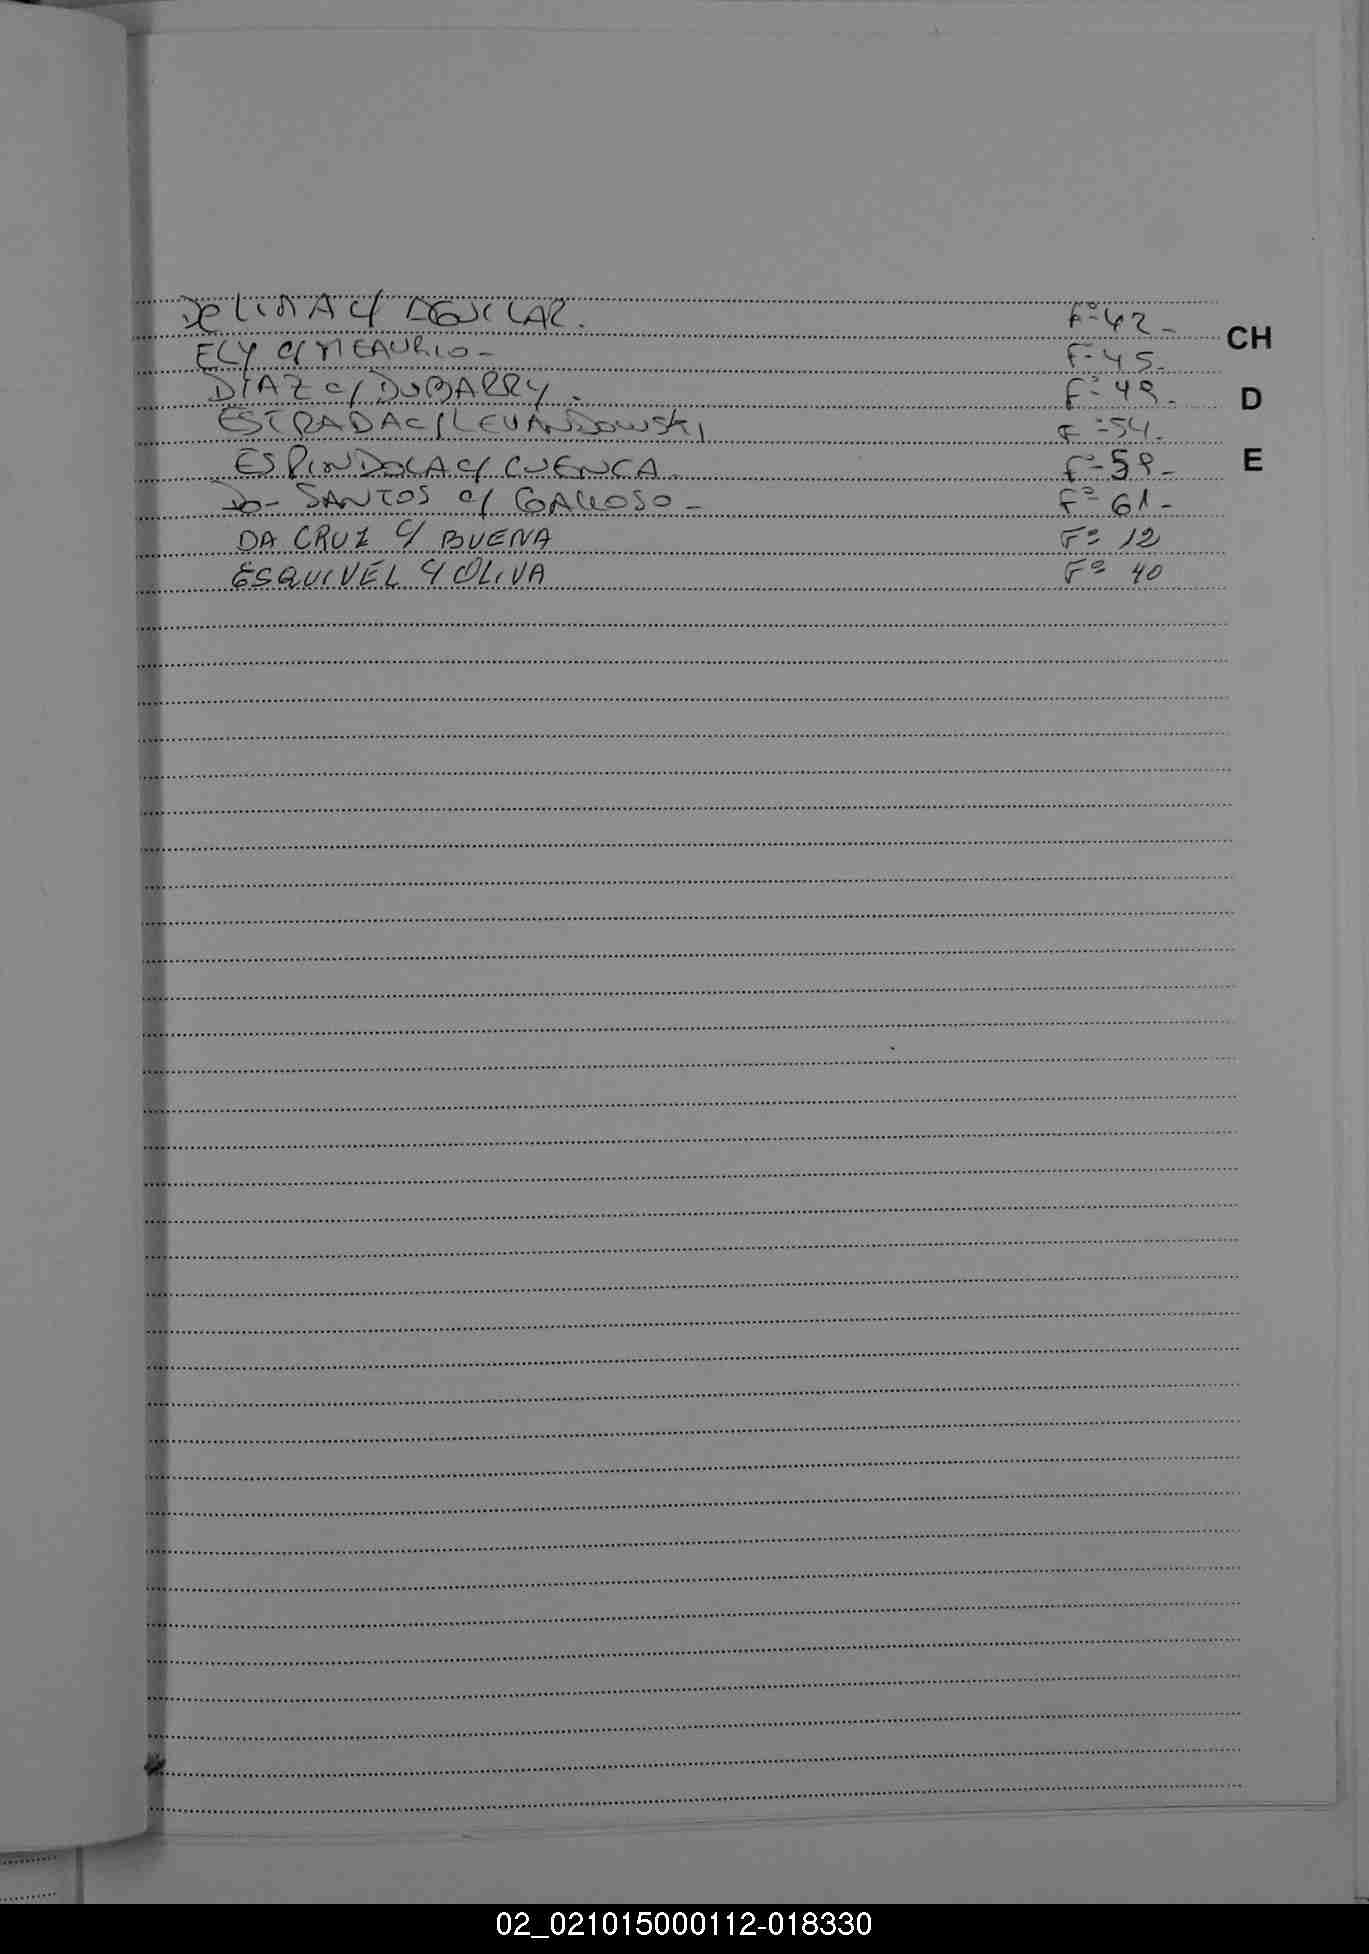 De LIMA c/ AGUILAR. Fº 42-
CH
ELY c/ MEAURIO- Fº 45.
DIAZ c/ DUBARRY. Fº 49.
D
ESTRADA c/ LEVANDOWSKI Fº 54.
ESPINDOLA c/ CUENCA. Fº 59-
E
Do- SANTOS c/ GALLOSO- Fº 61-
DA CRUZ c/ BUENA Fº 12
ESQUIVEL c/ OLIVA Fº 40
02_021015000112-018330